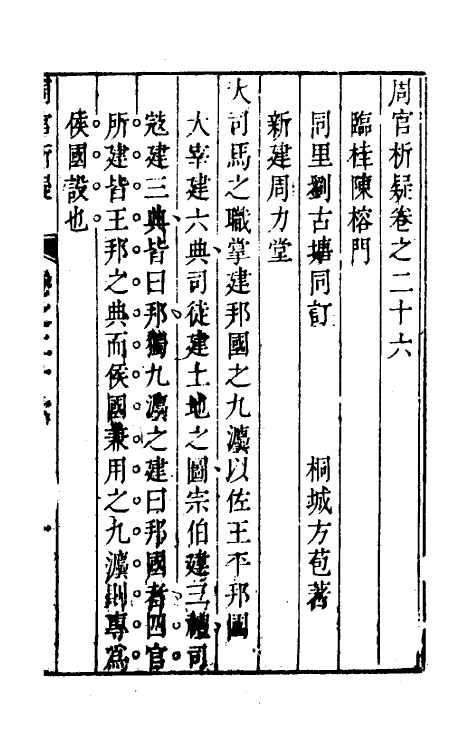 周官析疑卷之二十六
臨桂陳榕門
同里劉古塘同訂　桐城方苞著
新建周力堂
大司馬之職掌建邦國之九灋以佐王平邦國
大宰建六典司徒建土地之圖宗伯建三禮司
寇建三典皆曰邦獨九灋之建曰邦國者四官
所建皆王邦之典而侯國兼用之九灋則專為
侯國設也
周官析疑